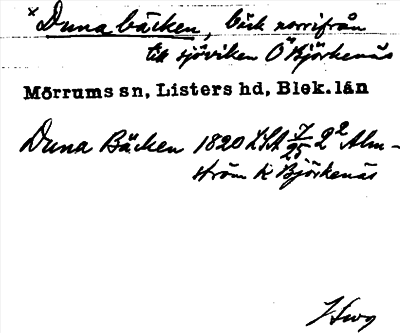 × Duna bäcken, bäck norrifrån
till sjöviken Ö Björkenäs
Mörrums sn, Listers hd, Blek. län
Duna Bäcken 1820 LSA 7/25 2² Alm-
ström k Björkenäs